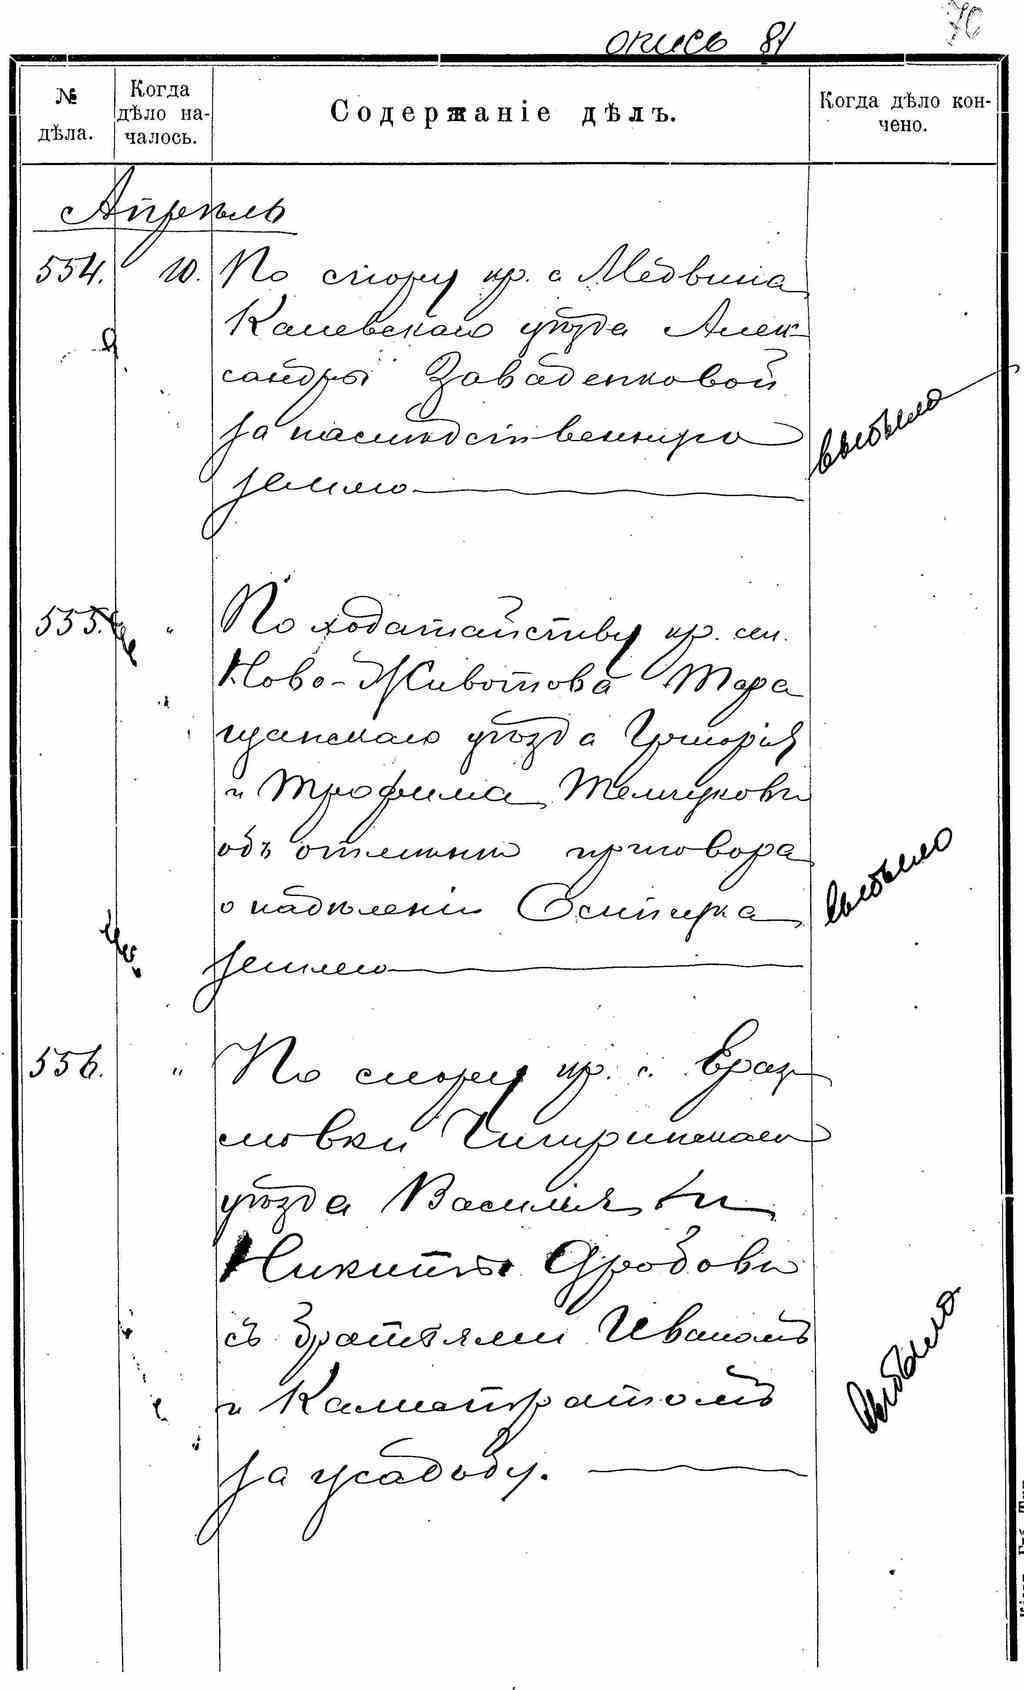 опись 81
76
№ дѣла.
Когда дѣло началось.
Содержаніе дѣлъ.
Когда дѣло кончено.
Апрѣль
554. 10. По спору кр. с Медвина
Каневскаго уѣзда Алек-
сандры Завадепковой
за наслѣдственную
землю
выбыло
555. " По ходатайству кр. сел.
Ново-Животова Тара
щанскаго уѣзда Григорія
и Трофима
объ отмѣнѣ приговора
о надѣленіи Осипчука
землею
выбыло
556. " По спору кр. с. Ераз
мовки Чигиринскаго
уѣзда Василія и
Никиты Дробовы
съ братьями Иваномъ
и Калистратомъ
за усадьбу.
выбыло